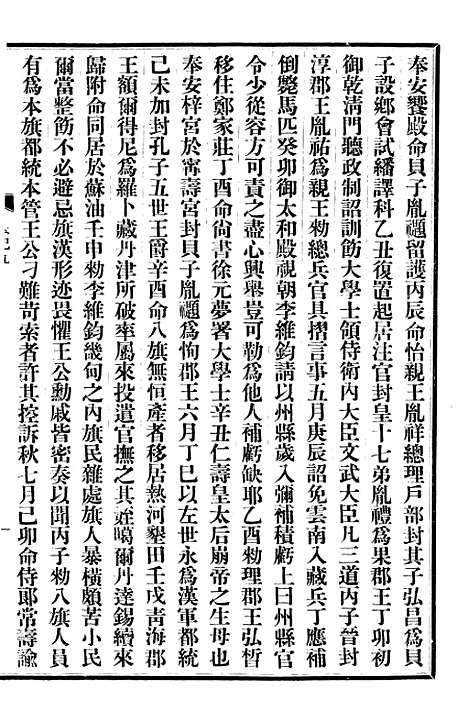 奉安饗殿命貝子胤禵留護丙辰命怡親王胤祥總理戶部封其子弘昌爲貝
子設鄉會試繙譯科乙丑復置起居注官封皇十七弟胤禮爲果郡王丁卯初
御乾清門聽政制詔訓飭大學士領侍衛內大臣文武大臣凡三道丙子晉封
淳郡王胤祐爲親王勅總兵官具摺言事五月庚辰詔免雲南入藏兵丁應補
倒斃馬匹癸卯御太和殿視朝李維鈞請以州縣歲入彌補積虧上曰州縣官
令少從容方可責之盡心興舉豈可勒爲他人補虧缺耶乙酉勅理郡王弘晳
移住鄭家莊丁酉命尙書徐元夢署大學士辛丑仁壽皇太后崩帝之生母也
奉安梓宮於寧壽宮封貝子胤禵爲恂郡王六月丁巳以左世永爲漢軍都統
己未加封孔子五世王爵辛酉命八旗無恒產者移居熱河墾田壬戌靑海郡
王額爾得尼爲羅卜藏丹津所破率屬來投遣官撫之其姪噶爾丹達錫續來
歸附命同居於蘇油壬申勅李維鈞畿甸之內旗民雜處旗人暴橫頗苦小民
爾當整飭不必避忌旗漢形迹畏懼王公勳戚皆密奏以聞丙子勅八旗人員
有爲本旗都統本管王公刁難苛索者許其控訴秋七月己卯命侍郎常壽諭